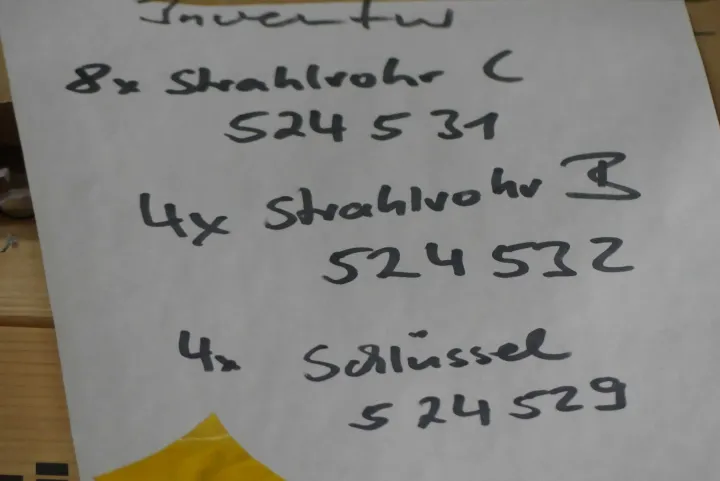 Inventur
8x Strahlrohr C
524 531
4x Strahlrohr B
524 532
4x Schlüssel
524529